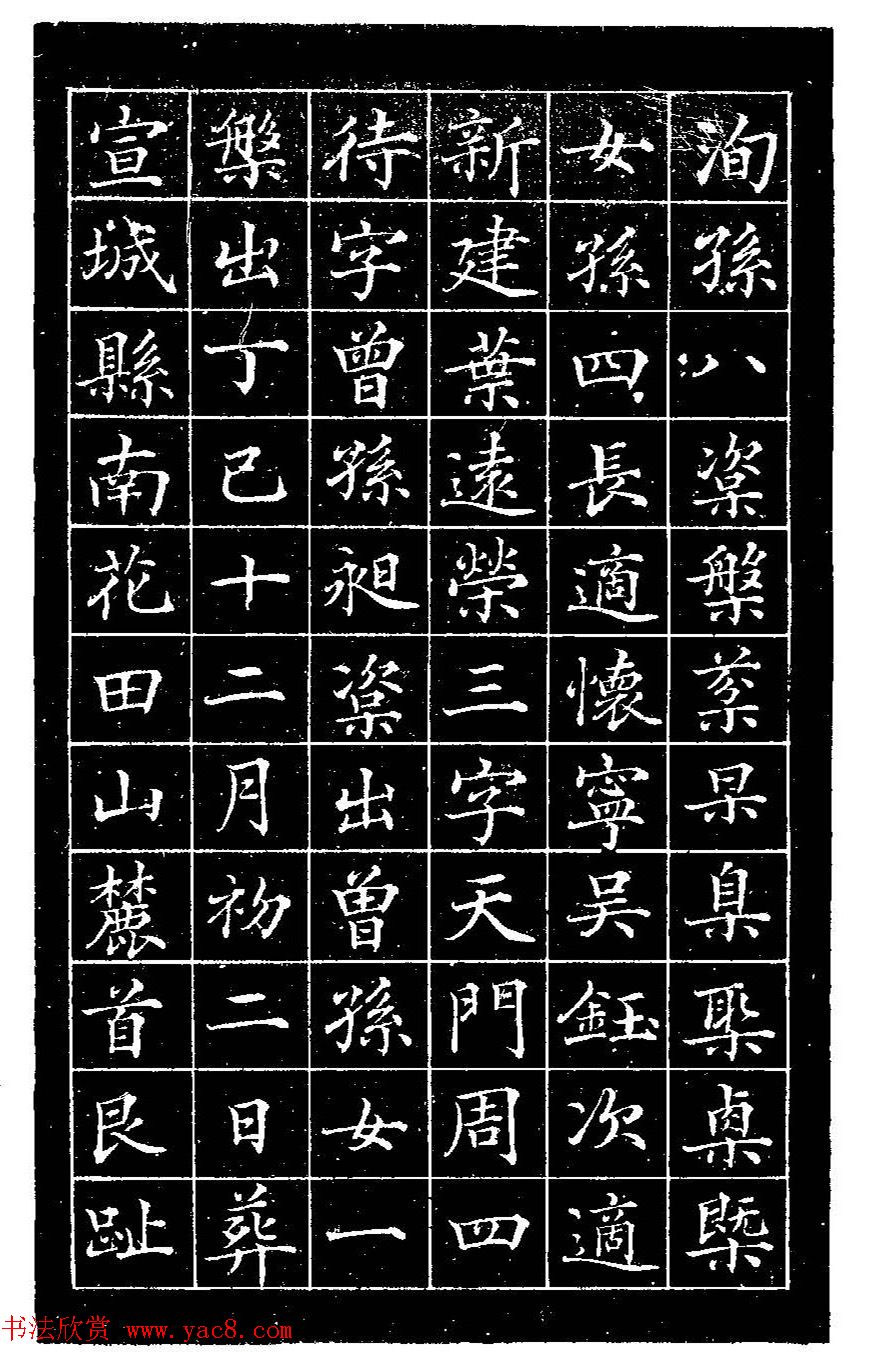 洵孫八栥槃棻杲臬棸桌槩
女孫四長適懷寧吳鈺次適
新建葉遠榮三字天門周四
待字曾孫昶栥出曾孫女一
槃出丁巳十二月初二日葬
宣城縣南花田山麓首艮趾
书法欣赏 www.yac8.com